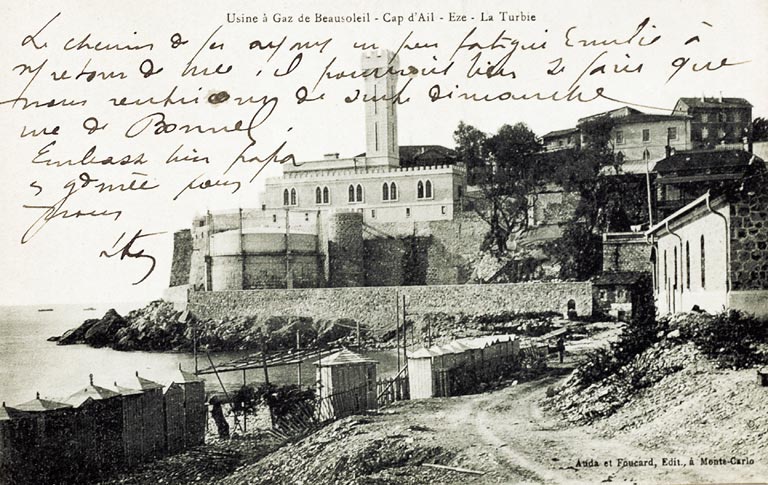 Usine à Gaz de Beausoleil - Cap d'Ail - Eze - La Turbie
Le chemin de fer ayant un peu fatigué Emilie à
retour de Nice, il pourrait bien se faire que
nous rentrions de suite dimanche
de Bonnel.
Embasse bien papa
pour
Auda et Foucard, Edit., à Monte-Carlo